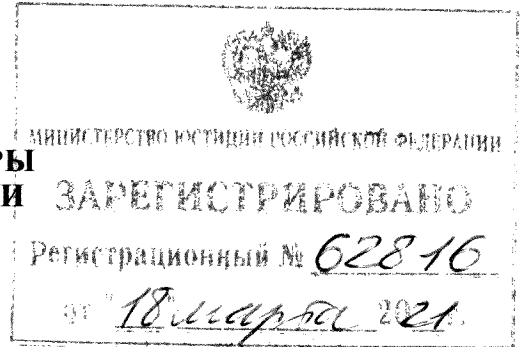 МИНИСТЕРСТВО ЮСТИЦИИ РОССИЙСКОЙ ФЕДЕРАЦИИ
РЫ
И
ЗАРЕГИСТРИРОВАНО
Регистрационный № 62816
от "18" марта 2021г.